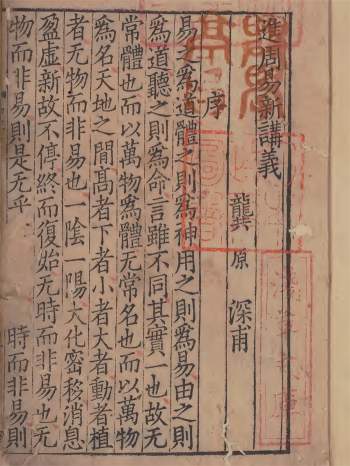 進周易新講義
龔原 深甫
序
易之爲道體之則爲神用之則爲易由之則
爲道聽之則爲命言雖不同其實一也故无
常體也而以萬物爲體无常名也而以萬物
爲名天地之間髙者下者小者大者動者植
者无物而非易也一陰一陽大化密移消息
盈虛新故不停終而復始无時而非易也无
物而非易則是无乎 時而非易則